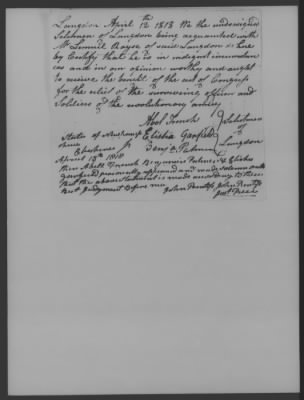 Langdon April 12th 1818 We the undersigned
Selectmen of Langdon being acquainted with
Mr Lemuel Hayse of said Langdon do here
by Certify that he is in indigent circumstan
ces and in our opinion worthy and ought
to receive the benefit of the act of Congress
for the relief of the surviving officers and
Soldiers of the revolutionary army
Abel French
Elisha Garfield
Benjn Palmer
Selectmen
of
Langdon
State of Newhamp
shire
Cheshire ss
April 13th 1818
then Abel French Benjamin Palmer & Elisha
Garfield personally appeared and made solemn oath
that the above statement is made according to their
best judgment before me
John Prentiss
Just Peace